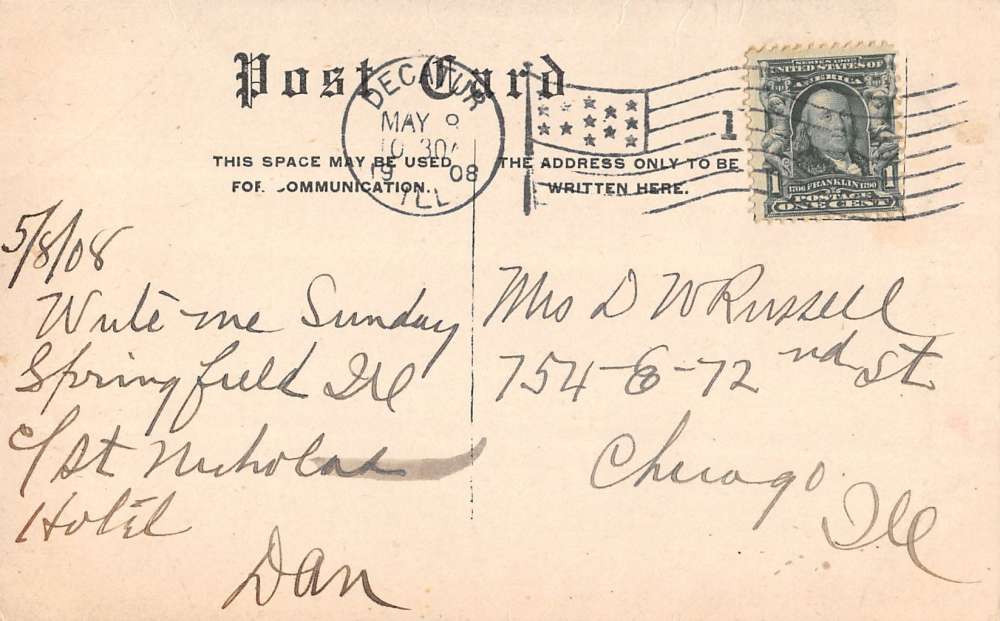 Post Card
THIS SPACE MAY BE USED
FOR COMMUNICATION.
THE ADDRESS ONLY TO BE
WRITTEN HERE.
DECATUR
MAY 8
10 30A
19 08
ILL
1
SERIES 1902
UNITED STATES OF
AMERICA
1 1
1706 FRANKLIN 1790
POSTAGE
ONE CENT
5/8/08
Write me Sunday
Springfield Ill
c/ St Nicholas
Hotel
Dan
Mrs D W Russell
754-E-72nd St
Chicago
Ill